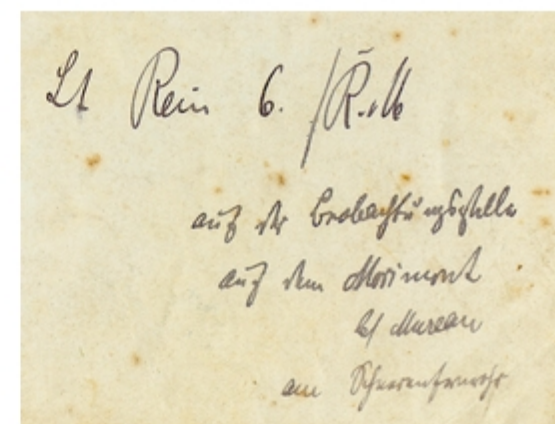 Lt Rein 6. /R.
auf der Beobachtungsstelle
auf dem Morimont
bei Mureau
am Scherenfernrohr